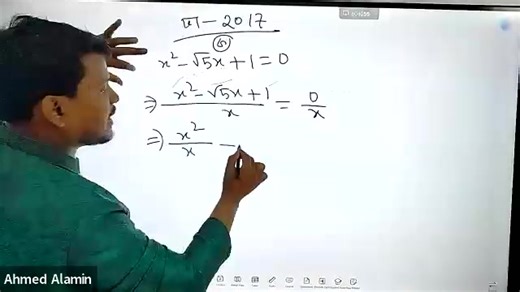 ঢা - 2017
x² - √5x + 1 = 0
⇒ (x² - √5x + 1)/x = 0/x
⇒ x²/x -
Ahmed Alamin